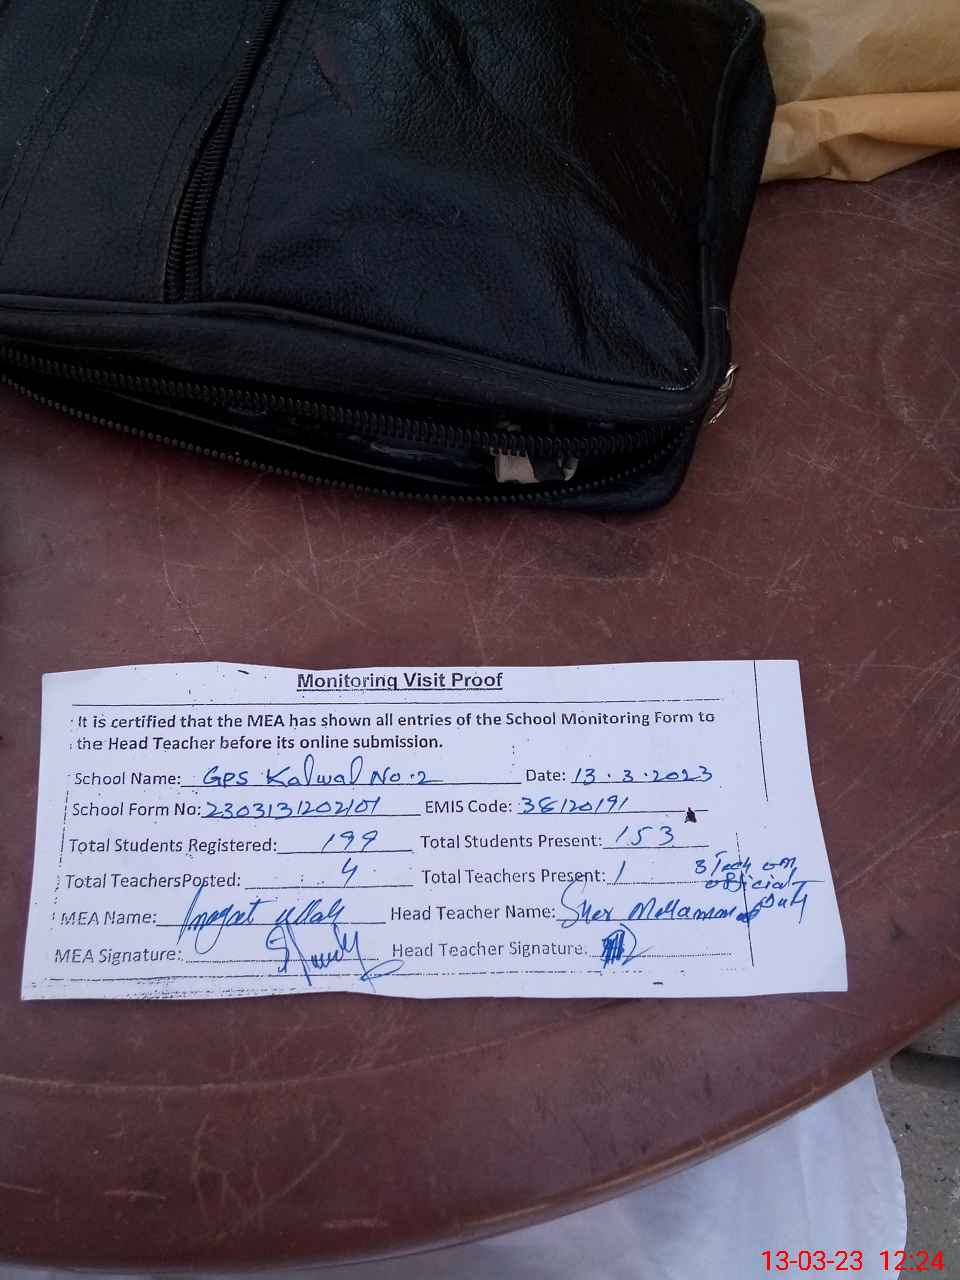 Monitoring Visit Proof
It is certified that the MEA has shown all entries of the School Monitoring Form to
the Head Teacher before its online submission.
School Name: GPS Kalwal No.2 Date: 13.3.2023
School Form No: 2303131202101 EMIS Code: 38120191
Total Students Registered: 199 Total Students Present: 153
Total TeachersPosted: 4 Total Teachers Present: 1 3 Teach on
official
Duty
MEA Name: Inayat Ullah Head Teacher Name: Sher Mohammad
MEA Signature: Head Teacher Signature:
13-03-23 12:24